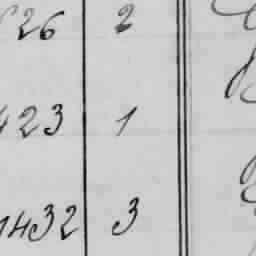 626 2
423 1
1432 3